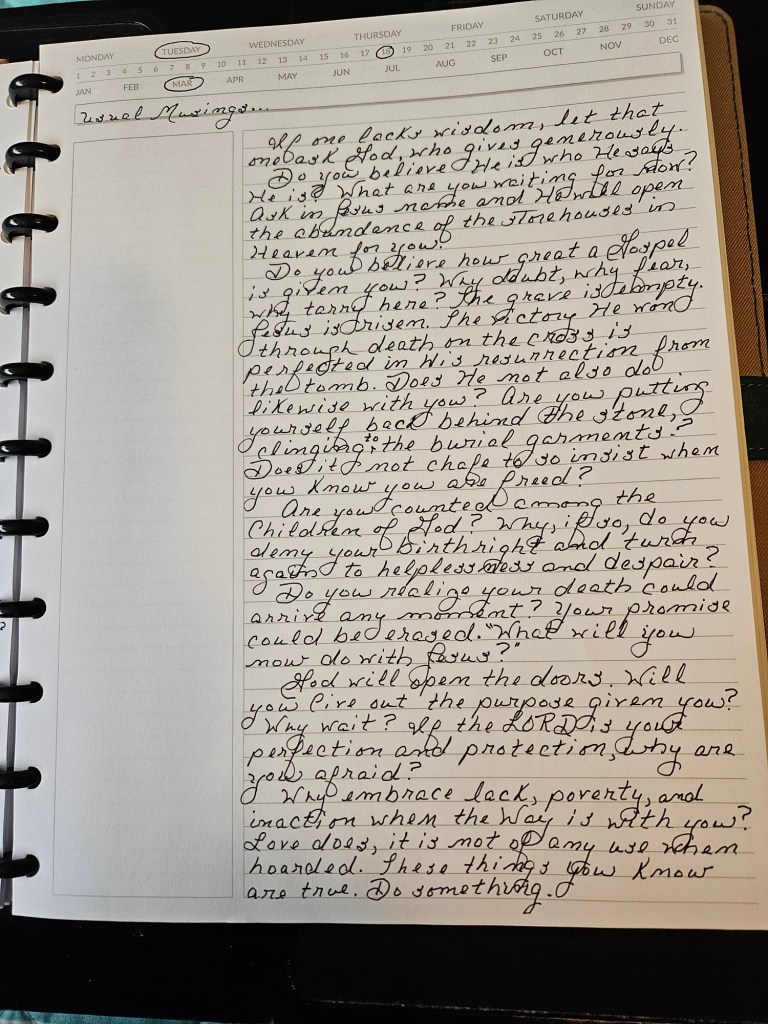 MONDAY TUESDAY WEDNESDAY THURSDAY FRIDAY SATURDAY SUNDAY
1 2 3 4 5 6 7 8 9 10 11 12 13 14 15 16 17 18 19 20 21 22 23 24 25 26 27 28 29 30 31
JAN FEB MAR APR MAY JUN JUL AUG SEP OCT NOV DEC
Usual Musings...
If one lacks wisdom, let that
one ask God, who gives generously.
Do you believe He is who He says
He is? What are you waiting for now?
Ask in Jesus name and He will open
the abundance of the storehouses in
Heaven for you.
Do you believe how great a Gospel
is given you? Why doubt, why fear,
why tarry here? The grave is empty.
Jesus is risen. The victory He won
through death on the cross is
perfected in His resurrection from
the tomb. Does He not also do
likewise with you? Are you putting
yourself back behind the stone,
clinging to the burial garments?
Does it not chafe to so insist when
you know you are freed?
Are you counted among the
Children of God? Why, if so, do you
deny your birthright and turn
again to helplessness and despair?
Do you realize your death could
arrive any moment? Your promise
could be erased. "What will you
now do with Jesus?"
God will open the doors. Will
you live out the purpose given you?
Why wait? If the LORD is your
perfection and protection, why are
you afraid?
Why embrace lack, poverty, and
inaction when the Way is with you?
Love does, it is not of any use when
hoarded. These things you know
are true. Do something.